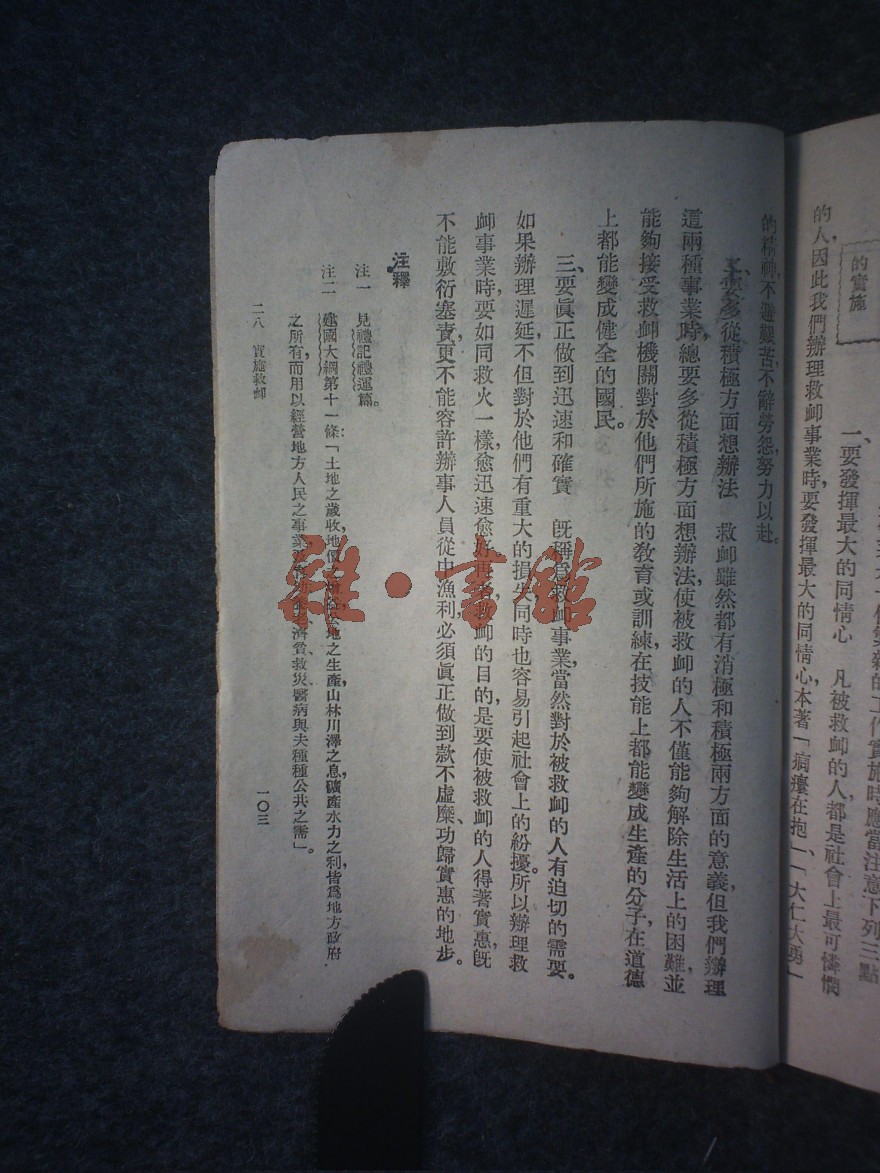 的實施
一、要發揮最大的同情心　凡被救卹的人都是社會上最可憐憫
的人，因此我們辦理救卹事業時，要發揮最大的同情心，本著「痌瘝在抱」、「大仁大勇」
的精神，不避艱苦，不辭勞怨，努力以赴。
二、要多從積極方面想辦法　救卹雖然都有消極和積極兩方面的意義，但我們辦理
這兩種事業時，總要多從積極方面想辦法，使被救卹的人不僅能夠解除生活上的困難，並
能夠接受救卹機關對於他們所施的敎育或訓練，在技能上都能變成生產的分子，在道德
上都能變成健全的國民。
三、要眞正做到迅速和確實　旣稱爲救卹事業，當然對於被救卹的人有迫切的需要。
如果辦理遲延，不但對於他們有重大的損失，同時也容易引起社會上的紛擾。所以辦理救
卹事業時，要如同救火一樣，愈迅速愈好。再者，救卹的目的，是要使被救卹的人得著實惠，旣
不能敷衍塞責，更不能容許辦事人員從中漁利，必須眞正做到款不虛糜，功歸實惠的地步。
注釋
注一　見禮記禮運篇。
注二　建國大綱第十一條：「土地之歲收，地價之增益，公地之生產，山林川澤之息，礦產水力之利，皆爲地方政府
之所有，而用以經營地方人民之事業，濟貧、救災、醫病與夫種種公共之需」。
二八　實施救卹
一〇三
雜·書館